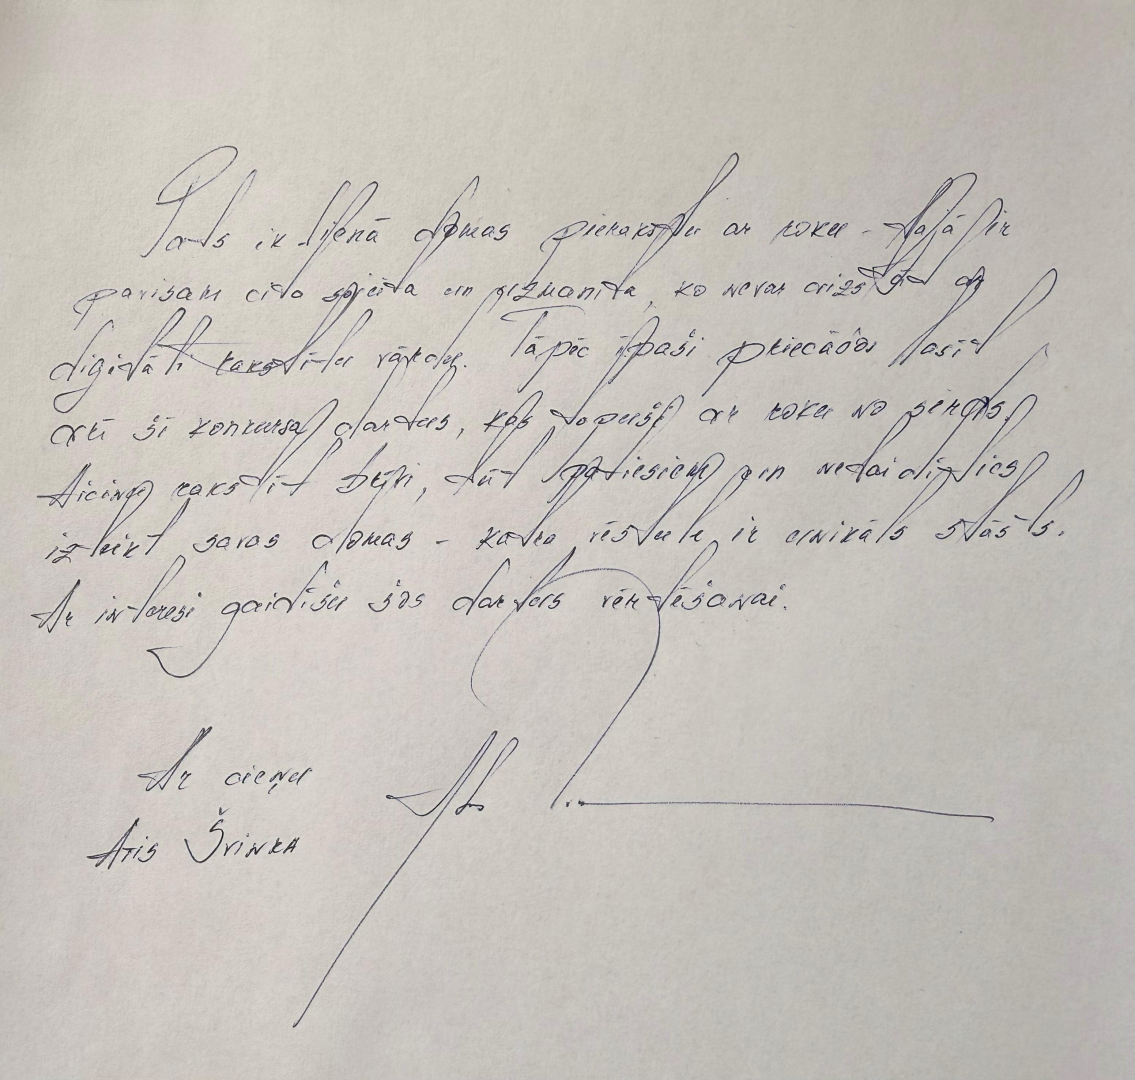 Pats ik dienā domas pierakstu ar roku - tajā ir
pavisam cita sajūta un uzmanība, ko nevar aizstāt ar
digitāli rakstītu vārdu. Tāpēc īpaši priecāšos lasīt
arī šī konkursa darbus, kas tapuši ar roku no sirds.
Aicinu rakstīt brīvi, būt patiesiem un nebaidīties
izteikt savas domas - katra vēstule ir unikāls stāsts.
Ar interesi gaidīšu šos darbus vērtēšanai.
Ar cieņu
Atis Švinka